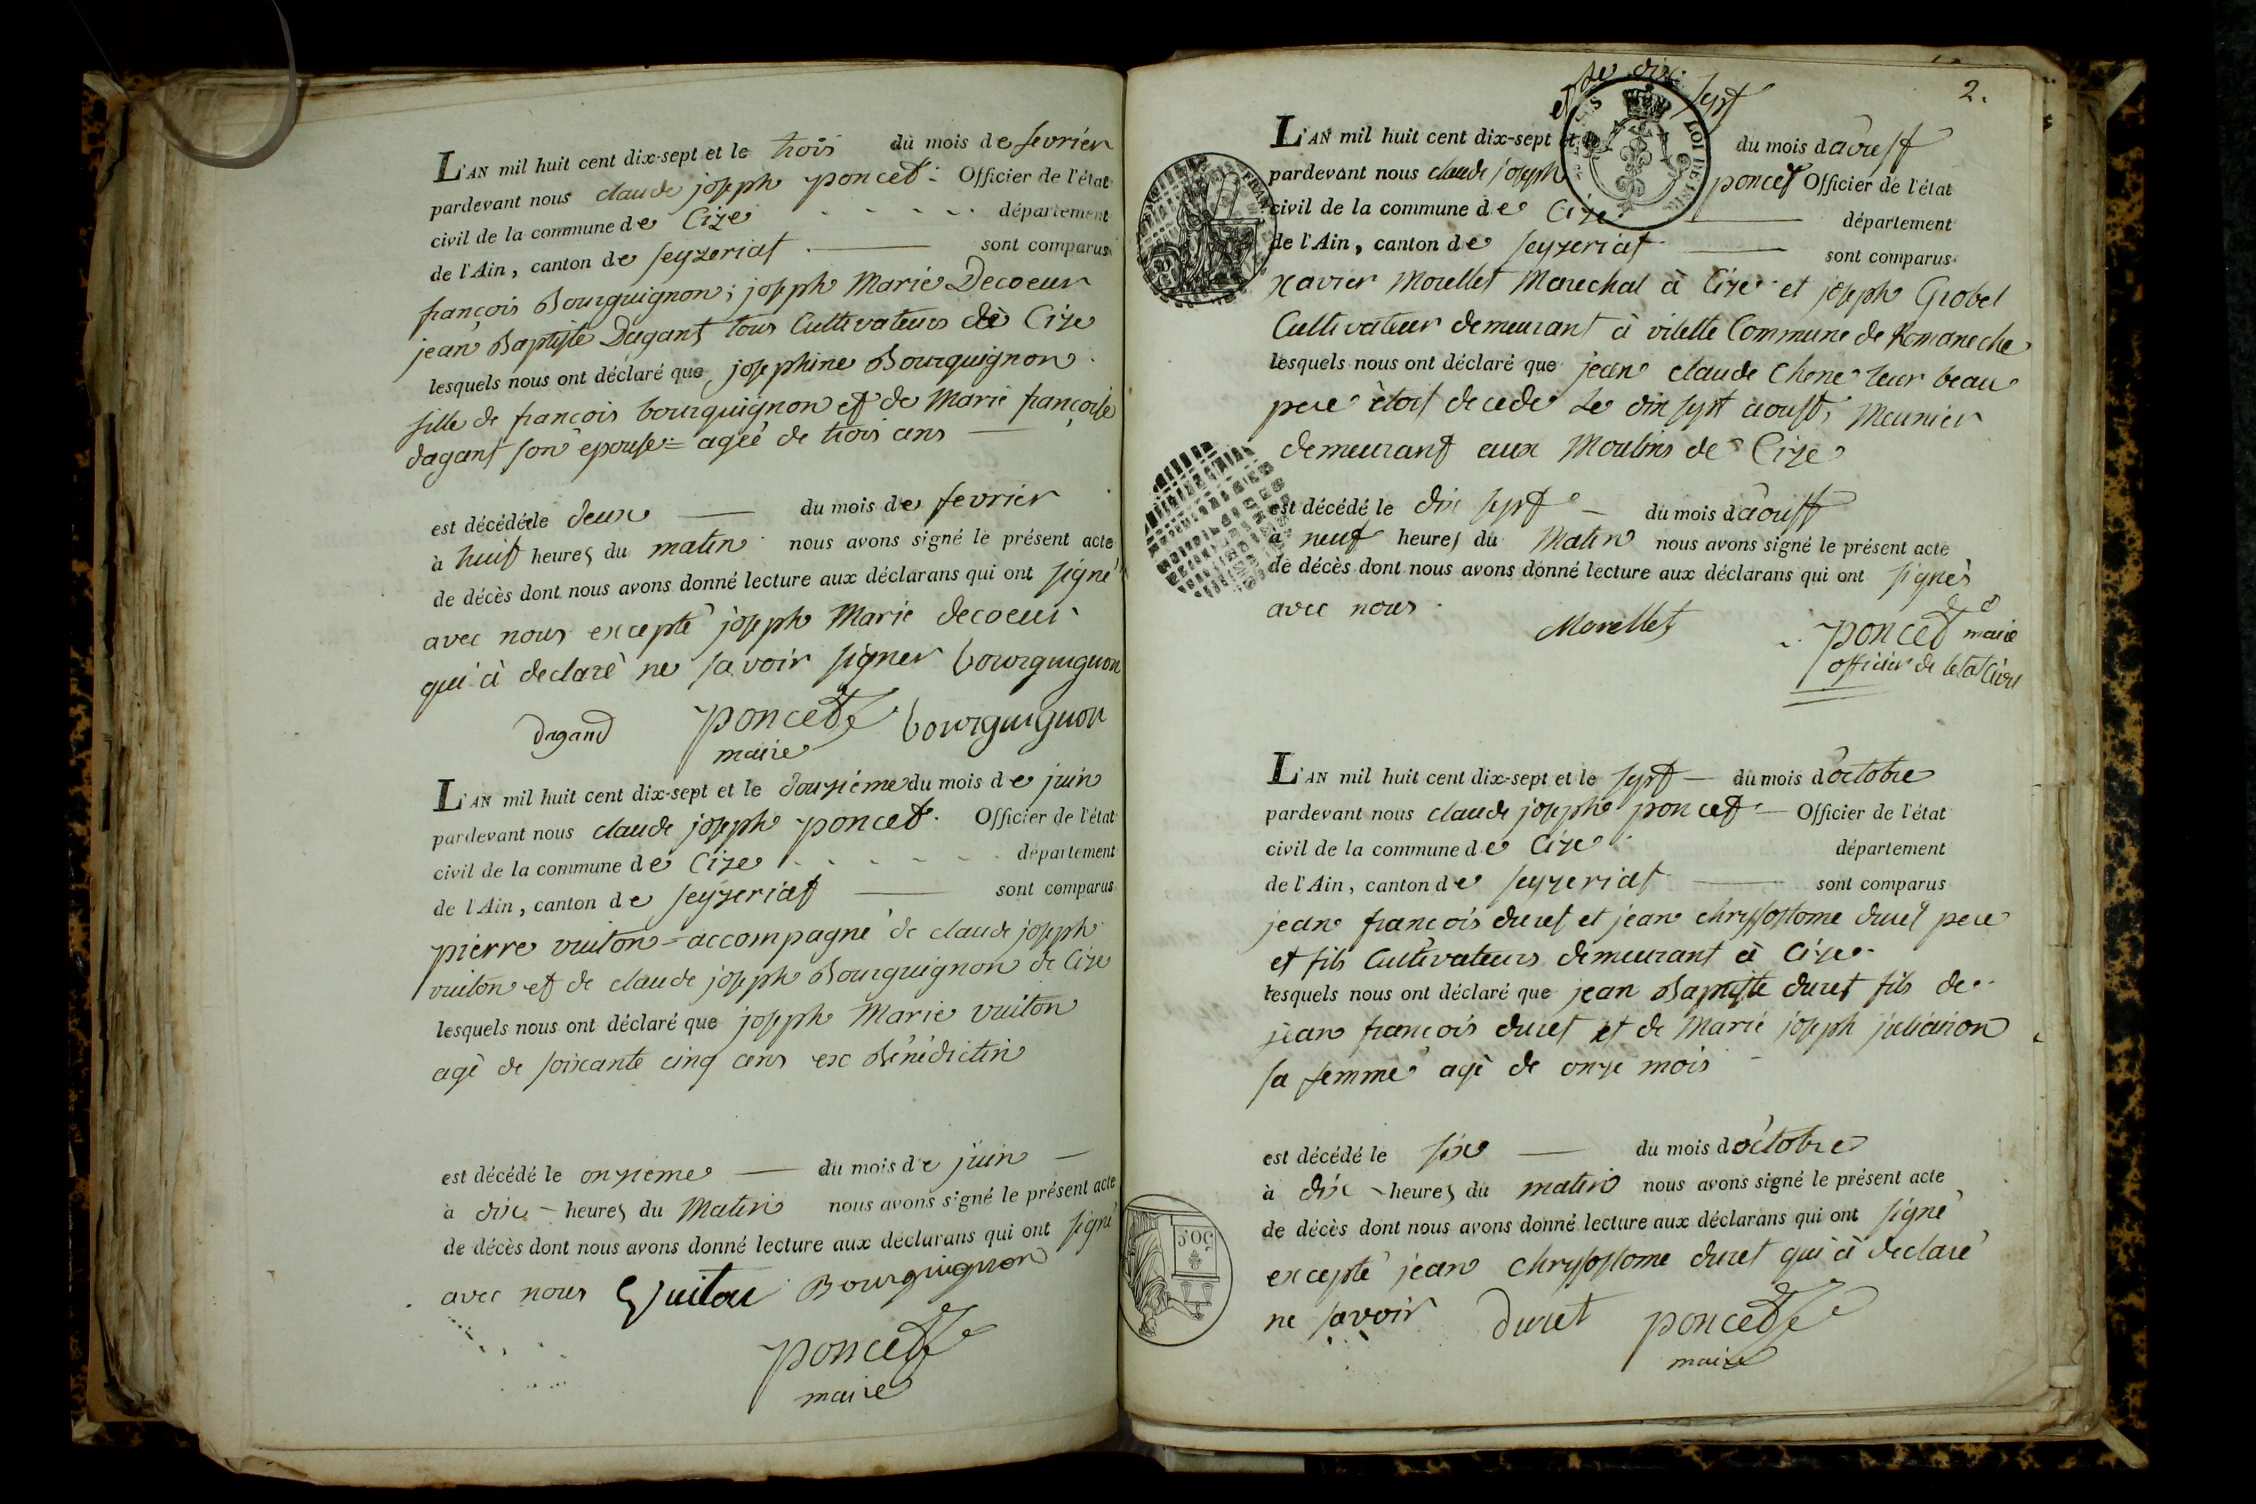 L'AN mil huit cent dix-sept et le trois du mois de fevrier
pardevant nous claude joseph poncet Officier de l'état
civil de la commune de Cize département
de l'Ain, canton de seyzeriat sont comparus
françois Bourguignon; joseph Marie Decoeur
jean Baptiste Dagant tous Cultivateurs de Cize
lesquels nous ont déclaré que josephine Bourguignon
fille de françois bourguignon et de Marie françoise
dagant son epouse = ageé de trois ans
est décédée le deux du mois de fevrier
à huit heures du matin nous avons signé le présent acte
de décès dont nous avons donné lecture aux déclarans qui ont signé
avec nous excepté joseph Marie decoeur
qui à declaré ne savoir signer bourguignon
dagand poncet bourguignon
maire
L'AN mil huit cent dix-sept et le douzieme du mois de juin
pardevant nous claude joseph poncet Officier de l'état
civil de la commune de Cize département
de l'Ain, canton de seyzeriat sont comparus
pierre vuiton = accompagné de claude joseph
vuiton et de claude joseph Bourguignon de Cize
lesquels nous ont déclaré que joseph Marie vuiton
agé de soixante cinq ans ex Bénédictin
est décédé le onzieme du mois de juin
à dix heures du Matin nous avons signé le présent acte
de décès dont nous avons donné lecture aux déclarans qui ont signé
avec nous Vuiton Bourguignon
poncet
maire
2.
et le dix sept
L'AN mil huit cent dix-sept et le du mois d'aoust
pardevant nous claude joseph poncet Officier de l'état
civil de la commune de Cize département
de l'Ain, canton de seyzeriat sont comparus
Xavier Morellet Marechal à Cize et joseph Grobel
Cultivateur demeurant à vilette Commune de Romaneche
lesquels nous ont déclaré que jean claude Chene leur beau
pere étoit decedé le dix sept aoust, Meunier
demeurant aux Moulins de Cize
est décédé le dix sept du mois d'aoust
à neuf heures du Matin nous avons signé le présent acte
de décès dont nous avons donné lecture aux déclarans qui ont signés
avec nous
Morellet poncet maire
officier de letat Civil
L'AN mil huit cent dix-sept et le sept du mois d'octobre
pardevant nous claude joseph poncet Officier de l'état
civil de la commune de Cize département
de l'Ain, canton de seyzeriat sont comparus
jean françois duret et jean chrysostome duret pere
et fils Cultivateurs demeurant à Cize
lesquels nous ont déclaré que jean Baptiste duret fils de
jean françois duret et de Marie joseph
sa femme agé de onze mois
est décédé le six du mois d'octobre
à dix heures du matin nous avons signé le présent acte
de décès dont nous avons donné lecture aux déclarans qui ont signé
excepté jean chrysostome duret qui à declaré
ne savoir duret poncet
maire
50C